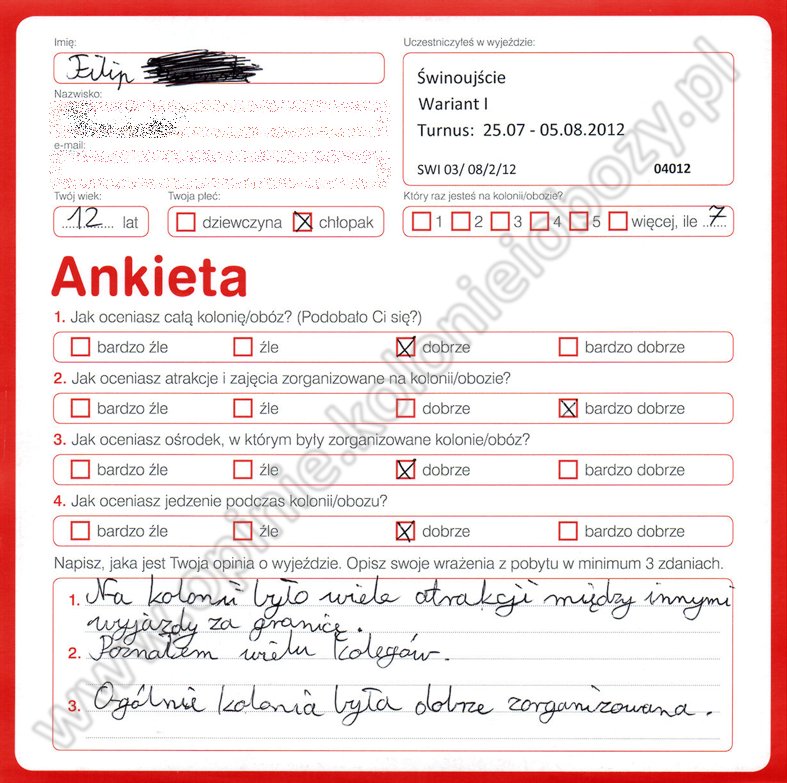 Imię: Uczestniczyłeś w wyjeździe:
Filip
Świnoujście
Wariant I
Turnus: 25.07 - 05.08.2012
SWI 03/ 08/2/12 04012
Nazwisko:
e-mail:
Twój wiek: Twoja płeć: Który raz jesteś na kolonii/obozie?
12 lat dziewczyna chłopak 1 2 3 4 5 więcej, ile 7
Ankieta
1. Jak oceniasz całą kolonię/obóz? (Podobało Ci się?)
bardzo źle źle dobrze bardzo dobrze
2. Jak oceniasz atrakcje i zajęcia zorganizowane na kolonii/obozie?
bardzo źle źle dobrze bardzo dobrze
3. Jak oceniasz ośrodek, w którym były zorganizowane kolonie/obóz?
bardzo źle źle dobrze bardzo dobrze
4. Jak oceniasz jedzenie podczas kolonii/obozu?
bardzo źle źle dobrze bardzo dobrze
Napisz, jaka jest Twoja opinia o wyjeździe. Opisz swoje wrażenia z pobytu w minimum 3 zdaniach.
1. Na kolonii było wiele atrakcji między innymi
wyjazdy za granicę.
2. Poznałem wielu kolegów.
3. Ogólnie kolonia była dobrze zorganizowana.
www.opinie.kolonieiobozy.pl